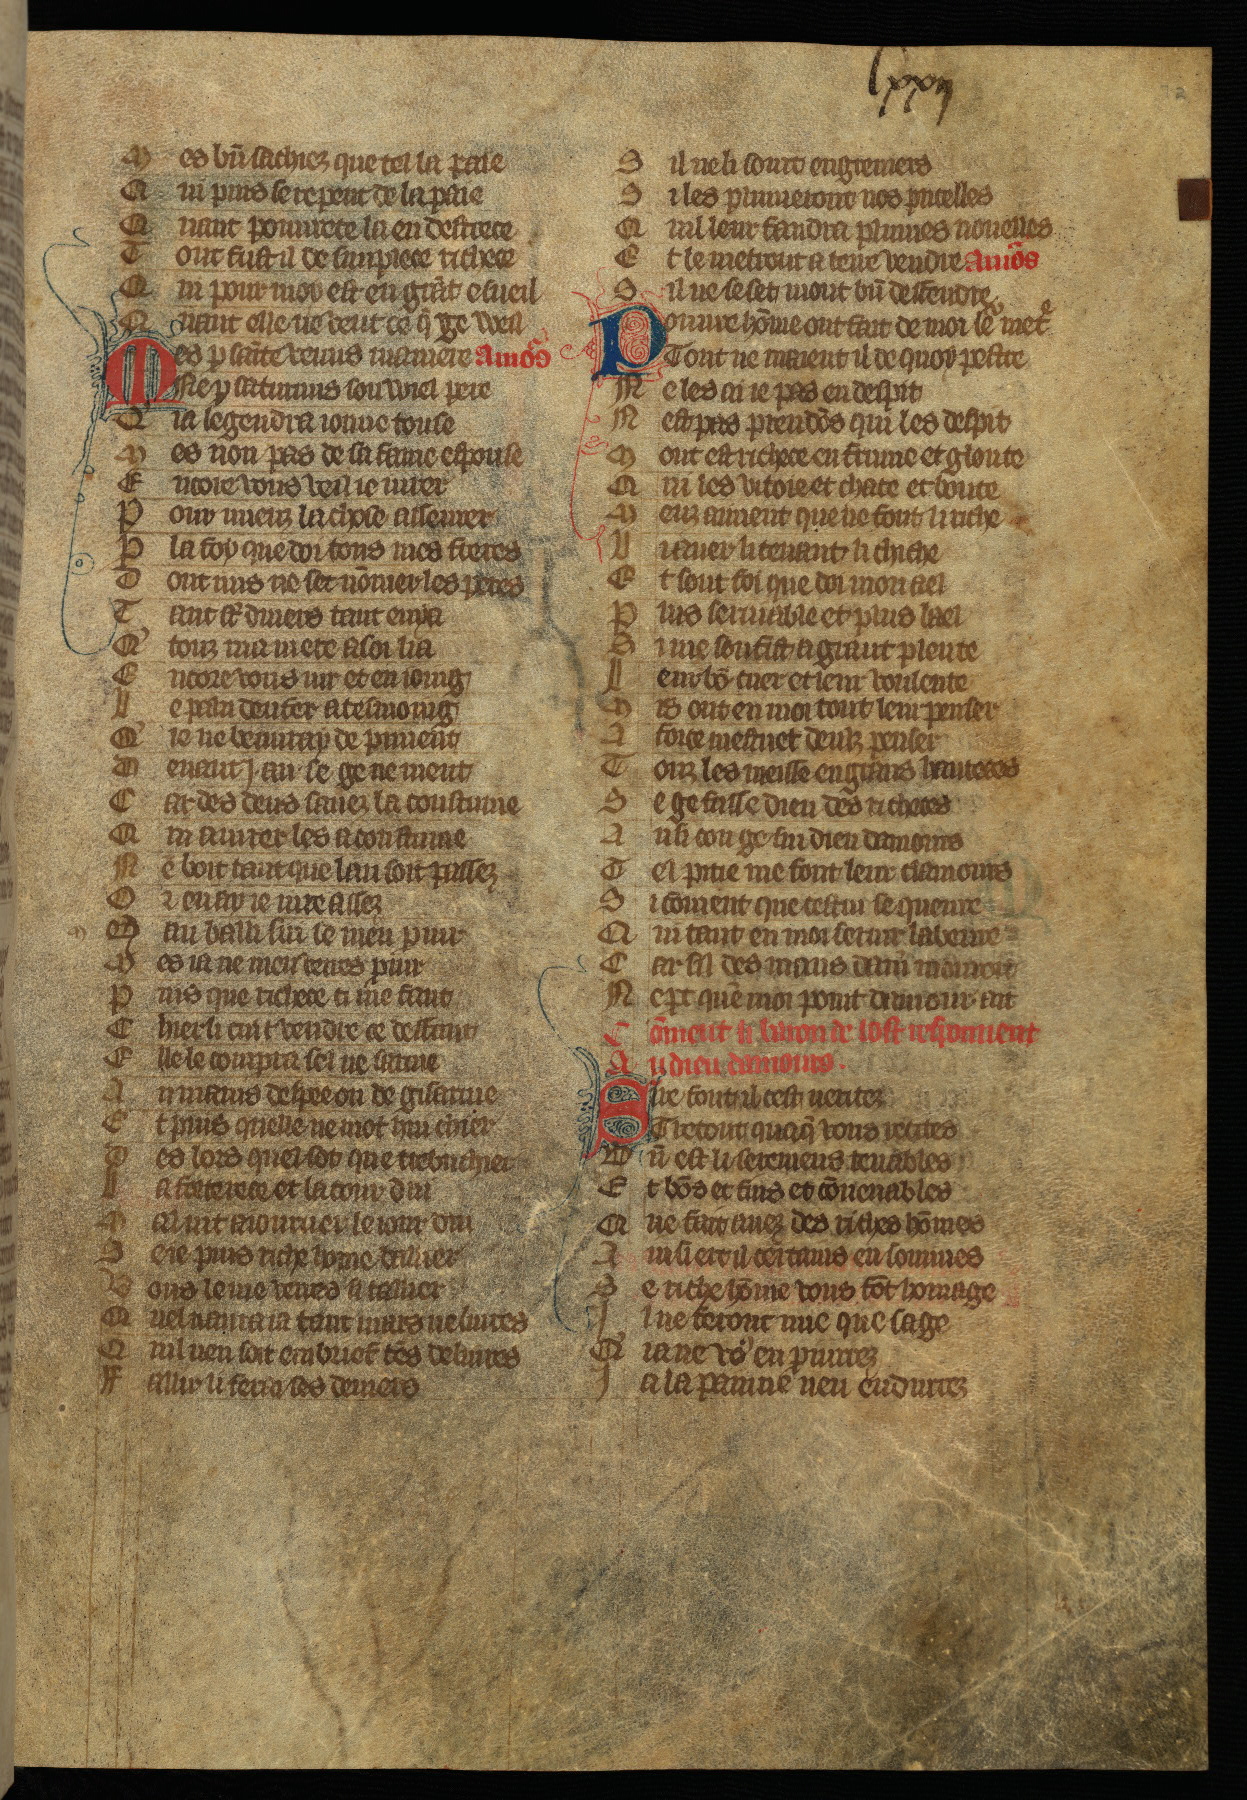 lxxij
Mes bñ sachiez que tel la paie
Qui puis se repent de la paie
Quant pouurete la en destrece
Tout fust il de simpiece richece
Qui pour moy est en grãt esueil
Quant elle ne veut ce q̃ ge vueil
Mes p sainte venus ma mere Amõs
Ne p saturnus son viel pere
Qui la gendra ioune touse
Mes non pas de sa fame espouse
Encore vous vueil ie iurer
Pour mieuz la chose asseurer
Par la foy que doi touz mes freres
Dont nus ne set nõmer les peres
Tant sõt diuers tant en y a
Q̃ touz ma mere a soi lia
Encore vous iur et en tesmoing
La palu denfer a tesmoing
Q̃ ie ne beurray de piment
Deuant j an se ge ne ment
Car des deus sauez la coustume
Qui a iurer les acoustume
Ne boit tant que lan soit passez
Or en ay ie iure assez
Mau bailli sui se men pariur
Mes ia ne men verres pariur
Puis que richece ci me faut
Chier li cuit vendre ce deffaut
Elle le comparra sel ne sarme
Au mains despee ou de gisarme
Et puis quelle ne mot hui chier
Des lors quel sot que trebuchier
La forterece et la tour dui
Mal vit aiourner le iour dui
Se ie puis riche home baillier
Vous le me verres si taillier
Quel naura ia tant mars ne liures
Quil nen soit en brief tẽs deliures
Faillir li feray ses deniers
Sil ne li sourt en greniers
Si les plumeront nos pucelles
Quil leur faudra plumes nouelles
Et le metront a terre vendre Amõs
Sil ne se set mout bñ deffendre
Poure hõme ont fait de moi leˢ metᵉ
Tout ne maient il de quoy pestre
Ne les ai ie pas en despit
Nest pas preudõs qui les despit
Mout est richece enfrume et gloute
Qui les vitoie et chace et boute
Miex aiment que ne font li riche
Li auer li tenant li chiche
Et sont foi que doi mon ael
Plus seruiable et plus lael
Si me souffist a grant plente
Leur bõ cuer et leur voulente
Mis ont en moi tout leur penser
A force mestuet deulz penser
Touz les meisse en grans hauteces
Se ge fusse dieu des richeces
Ausi con ge sui dieu damours
Tel pitie me font leur clamours
Si couient que cestui sequeure
Qui tant en moi seruir labeure
Car sil des maus damer mouroit
Nepert quen moi point damour ait
Coment li baron de lost respondent
Au dieu damours.
Sire font il cest veritez
Tretout quanq̃ vous recites
Bñ est li seremens tenables
Et bõs et fins et couenables
Que fait auez des riches hõmes
Ainsi ert il certains en sommes
Se riche hõme vous fõt homage
Il ne feront mie que sage
Q̃ ia ne võ en pariurrez
Ja la painne nen endurrez